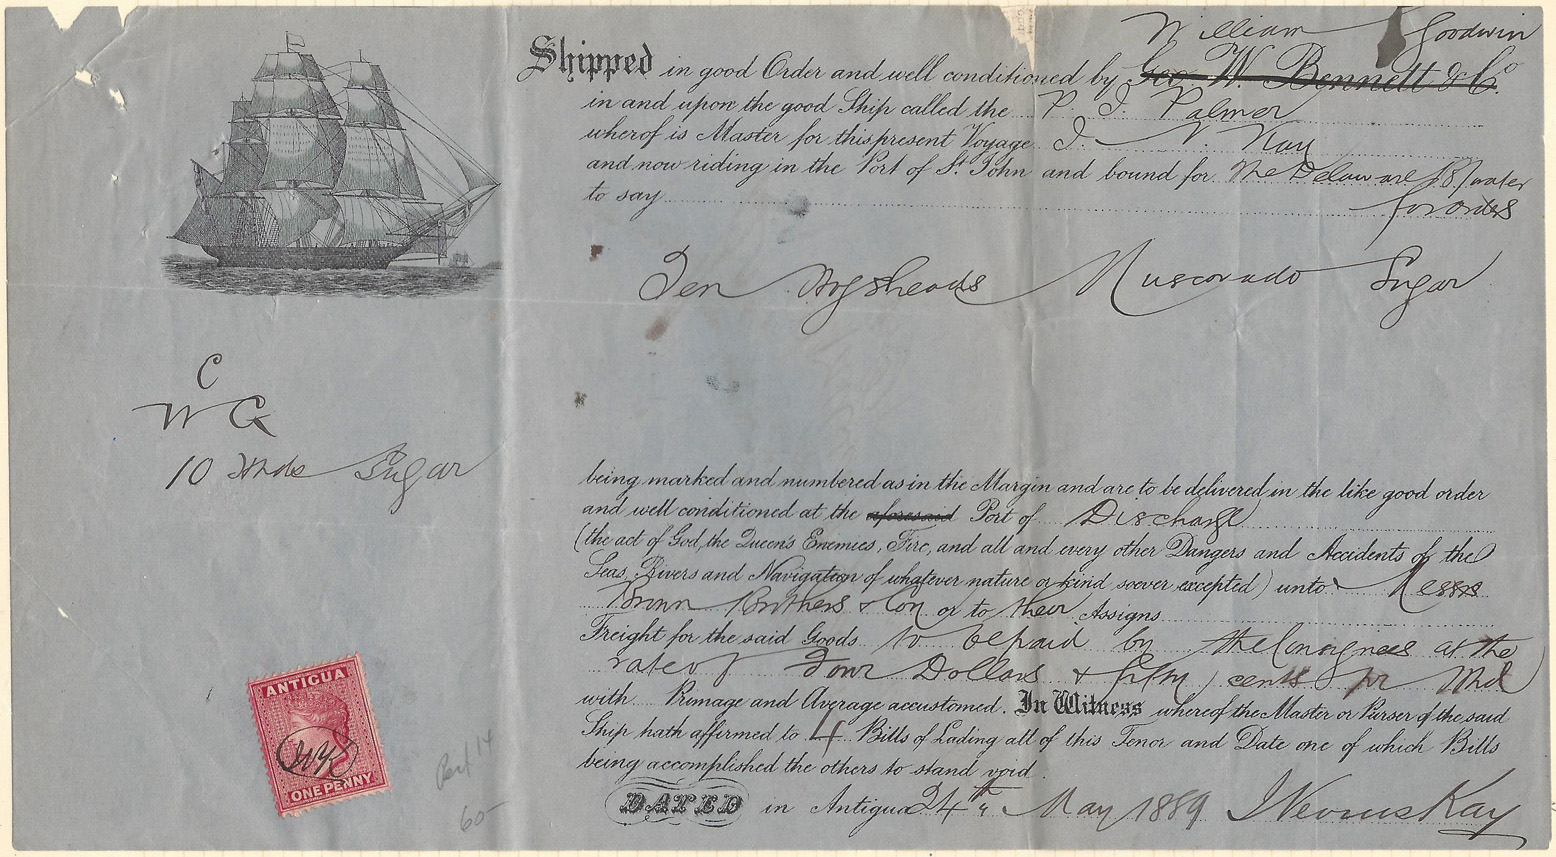 William Goodwin
Shipped in good Order and well conditioned by Geo W. Bennett & Co.
in and upon the good Ship called the P. J. Palmer
wherof is Master for this present Voyage J. N. Kay
and now riding in the Port of St. John and bound for the Delaware B/water
to say for orders
Ten Hogsheads Muscovado Sugar
C
W G
10 Hhds Sugar
being marked and numbered as in the Margin and are to be delivered in the like good order
and well conditioned at the aforesaid Port of Discharge
(the act of God, the Queen's Enemies, Fire, and all and every other Dangers and Accidents of the
Seas, Rivers and Navigation of whatever nature or kind soever excepted) unto Messrs
Brown Brothers & Con or to their Assigns
Freight for the said Goods to be paid by the Consignees at the
rate of Four Dollars & fifty cents pr Hhd
with Primage and Average accustomed. In Witness whereof the Master or Purser of the said
Ship hath affirmed to 4 Bills of Lading all of this Tenor and Date one of which Bills
being accomplished the others to stand void.
DATED in Antigua 24th May 1889 J Nevins Kay
ANTIGUA
ONE PENNY
Perf 14
60-